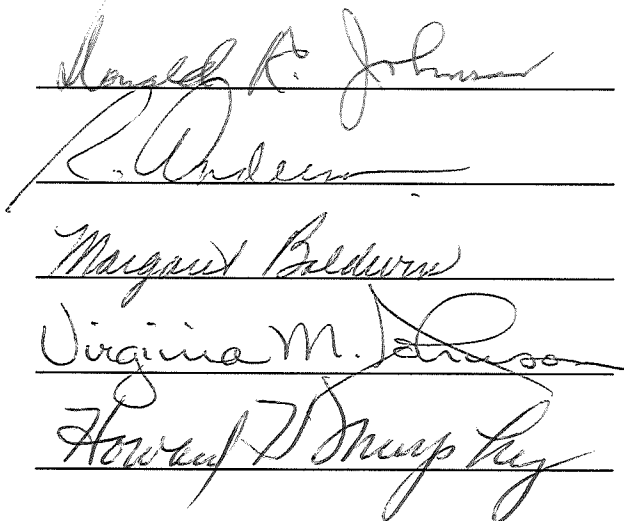 Donald R. Johnson
R. Anderson
Margaret Baldwin
Virginia M. Johnson
Howard Murphey